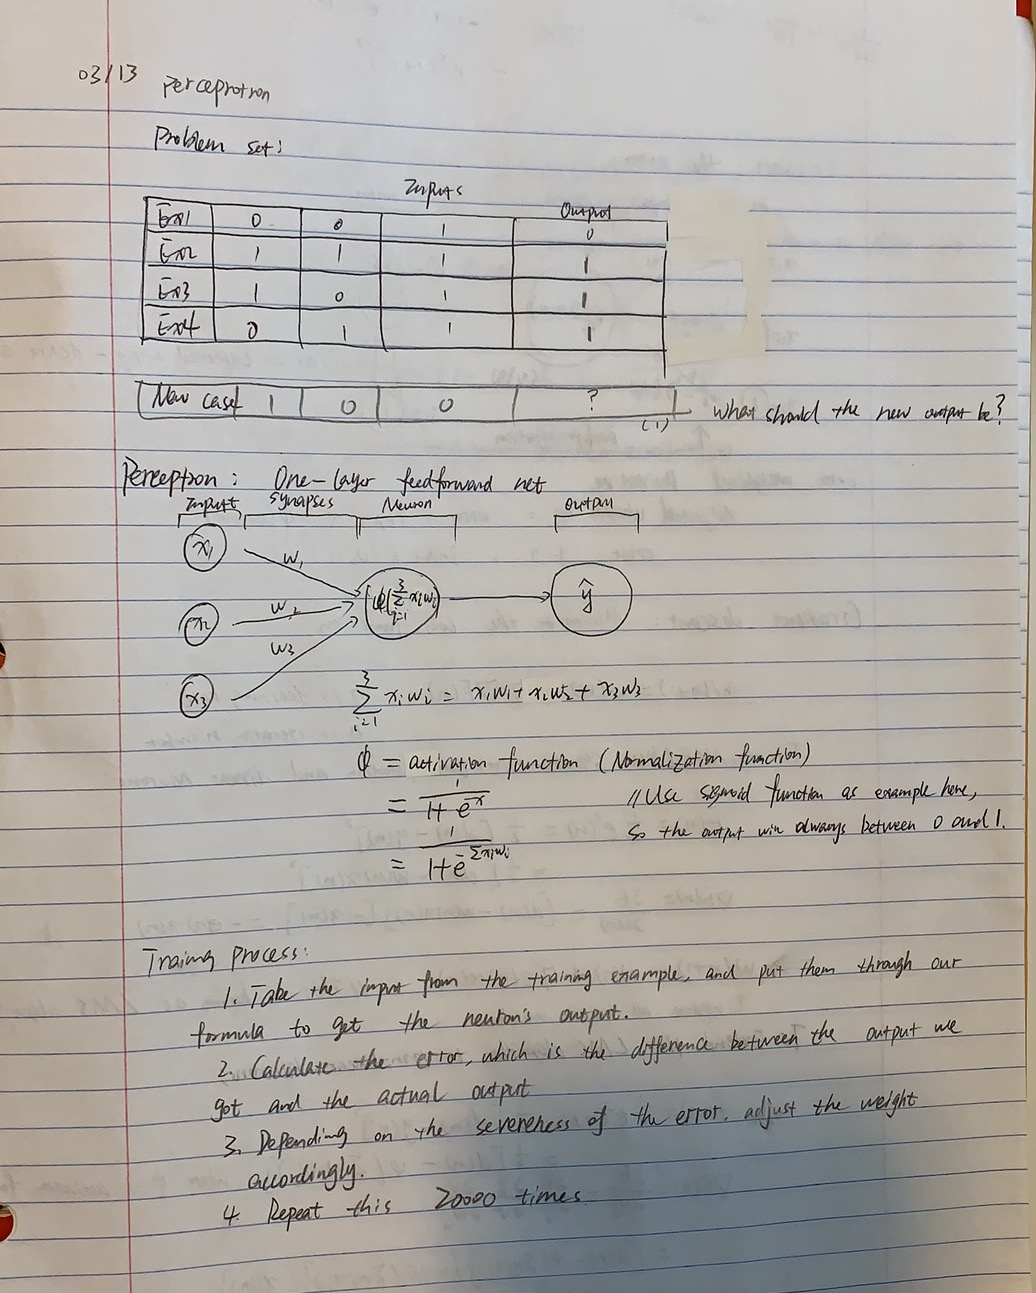 03/13 Perceprotron
Problem set:
Inputs
Output
Ex1 0 0 1 0
Ex2 1 1 1 1
Ex3 1 0 1 1
Ex4 0 1 1 1
New case 1 0 0 ?
(1) What should the new output be?
Perception: One-layer feedforward net
Input Synapses Neuron Output
x₁ w₁
x₂ w₂ φ(∑³ᵢ₌₁ xᵢwᵢ) ŷ
x₃ w₃
∑³ᵢ₌₁ xᵢwᵢ = x₁w₁ + x₂w₂ + x₃w₃
φ = activation function (Normalization function)
= 1/(1+e^-x) // Use sigmoid function as example here,
so the output win always between 0 and 1.
= 1/(1+e^-∑xᵢwᵢ)
Traing process:
1. Take the input from the training example, and put them through our
formula to get the neuron's output.
2. Calculate the error, which is the difference between the output we
got and the actual output
3. Depending on the severeness of the error, adjust the weight
accordingly.
4. Repeat this 20000 times